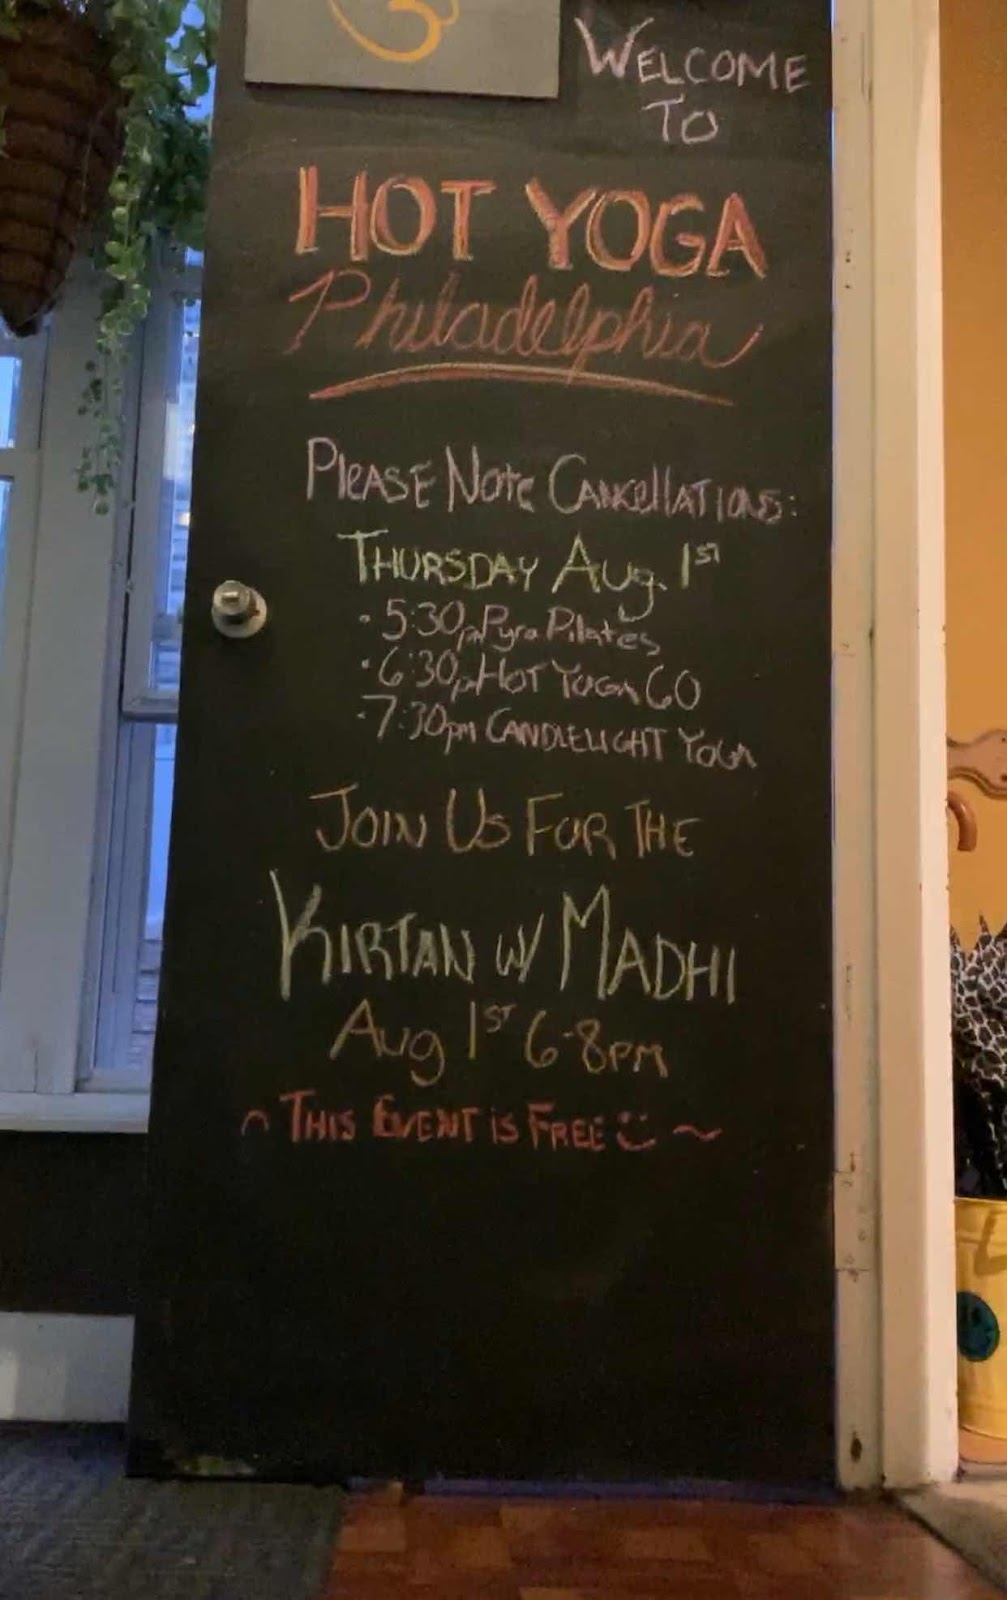 WELCOME
TO
HOT YOGA
Philadelphia
PLEASE NOTE CANCELLATIONS:
THURSDAY AUG. 1ST
• 5:30pm Pyro Pilates
• 6:30p HOT YOGA 60
• 7:30pm CANDLELIGHT YOGA
JOIN US FOR THE
KIRTAN W/ MADHI
AUG 1ST 6-8PM
~ THIS EVENT IS FREE ~